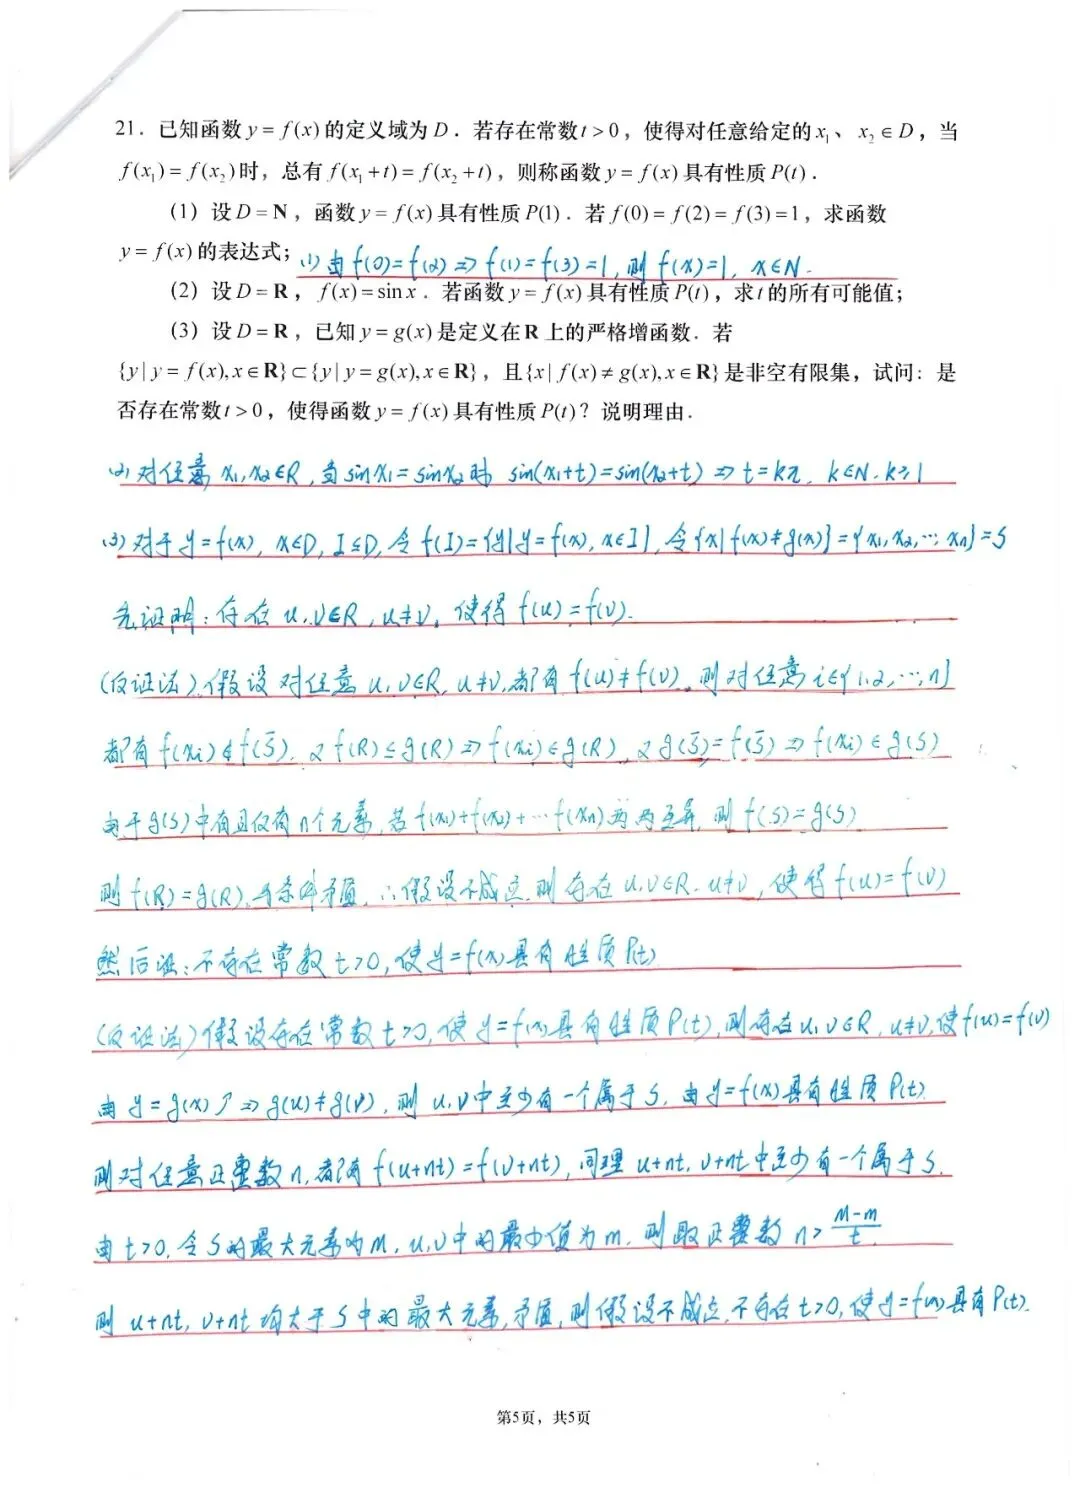 21. 已知函数 y = f(x) 的定义域为 D . 若存在常数 t > 0 , 使得对任意给定的 x₁、 x₂ ∈ D , 当
f(x₁) = f(x₂) 时, 总有 f(x₁ + t) = f(x₂ + t) , 则称函数 y = f(x) 具有性质 P(t) .
(1) 设 D = N , 函数 y = f(x) 具有性质 P(1) . 若 f(0) = f(2) = f(3) = 1 , 求函数
y = f(x) 的表达式; (1) 由 f(0)=f(2) ⇒ f(1)=f(3)=1, 则 f(x)=1, x∈N.
(2) 设 D = R , f(x) = sin x . 若函数 y = f(x) 具有性质 P(t) , 求 t 的所有可能值;
(3) 设 D = R , 已知 y = g(x) 是定义在 R 上的严格增函数. 若
{y | y = f(x), x ∈ R} ⊂ {y | y = g(x), x ∈ R} , 且 {x | f(x) ≠ g(x), x ∈ R} 是非空有限集, 试问: 是
否存在常数 t > 0 , 使得函数 y = f(x) 具有性质 P(t) ? 说明理由.
(2) 对任意 x₁,x₂∈R, 当 sinx₁=sinx₂时 sin(x₁+t)=sin(x₂+t) ⇒ t=kπ, k∈N, k≥1
(3) 对于 y=f(x), x∈D, I⊆D, 令 f(I)={y|y=f(x), x∈I}, 令{x|f(x)≠g(x)}={x₁,x₂,…,xₙ}=S
先证明: 存在 u,v∈R, u≠v, 使得 f(u)=f(v).
(反证法) 假设对任意 u,v∈R, u≠v, 都有 f(u)≠f(v), 则对任意 i∈{1,2,…,n}
都有 f(xᵢ)∉f(S̄). 又 f(R)⊆g(R) ⇒ f(xᵢ)∈g(R), 又 g(S̄)=f(S̄) ⇒ f(xᵢ)∈g(S)
由于 g(S) 中有且仅有 n个元素, 若 f(x₁)+f(x₂)+…f(xₙ) 两两互异, 则 f(S)=g(S)
则 f(R)=g(R), 与条件矛盾, ∴假设不成立, 则存在 u,v∈R, u≠v, 使得 f(u)=f(v)
然后证: 不存在常数 t>0, 使y=f(x)具有性质 P(t)
(反证法) 假设存在常数 t>0, 使 y=f(x)具有性质 P(t), 则存在 u,v∈R, u≠v, 使 f(u)=f(v)
由 y=g(x)↗ ⇒ g(u)≠g(v), 则 u,v中至少有一个属于 S, 由 y=f(x)具有性质 P(t)
则对任意正整数 n, 都有 f(u+nt)=f(v+nt), 同理 u+nt, v+nt 中至少有一个属于 S.
由 t>0, 令 S的最大元素为 M, u,v中的最小值为 m, 则取正整数 n> (M-m)/t
则 u+nt, v+nt 均大于 S 中的最大元素, 矛盾, 则假设不成立, 不存在 t>0, 使 y=f(x)具有 P(t).
第5页，共5页